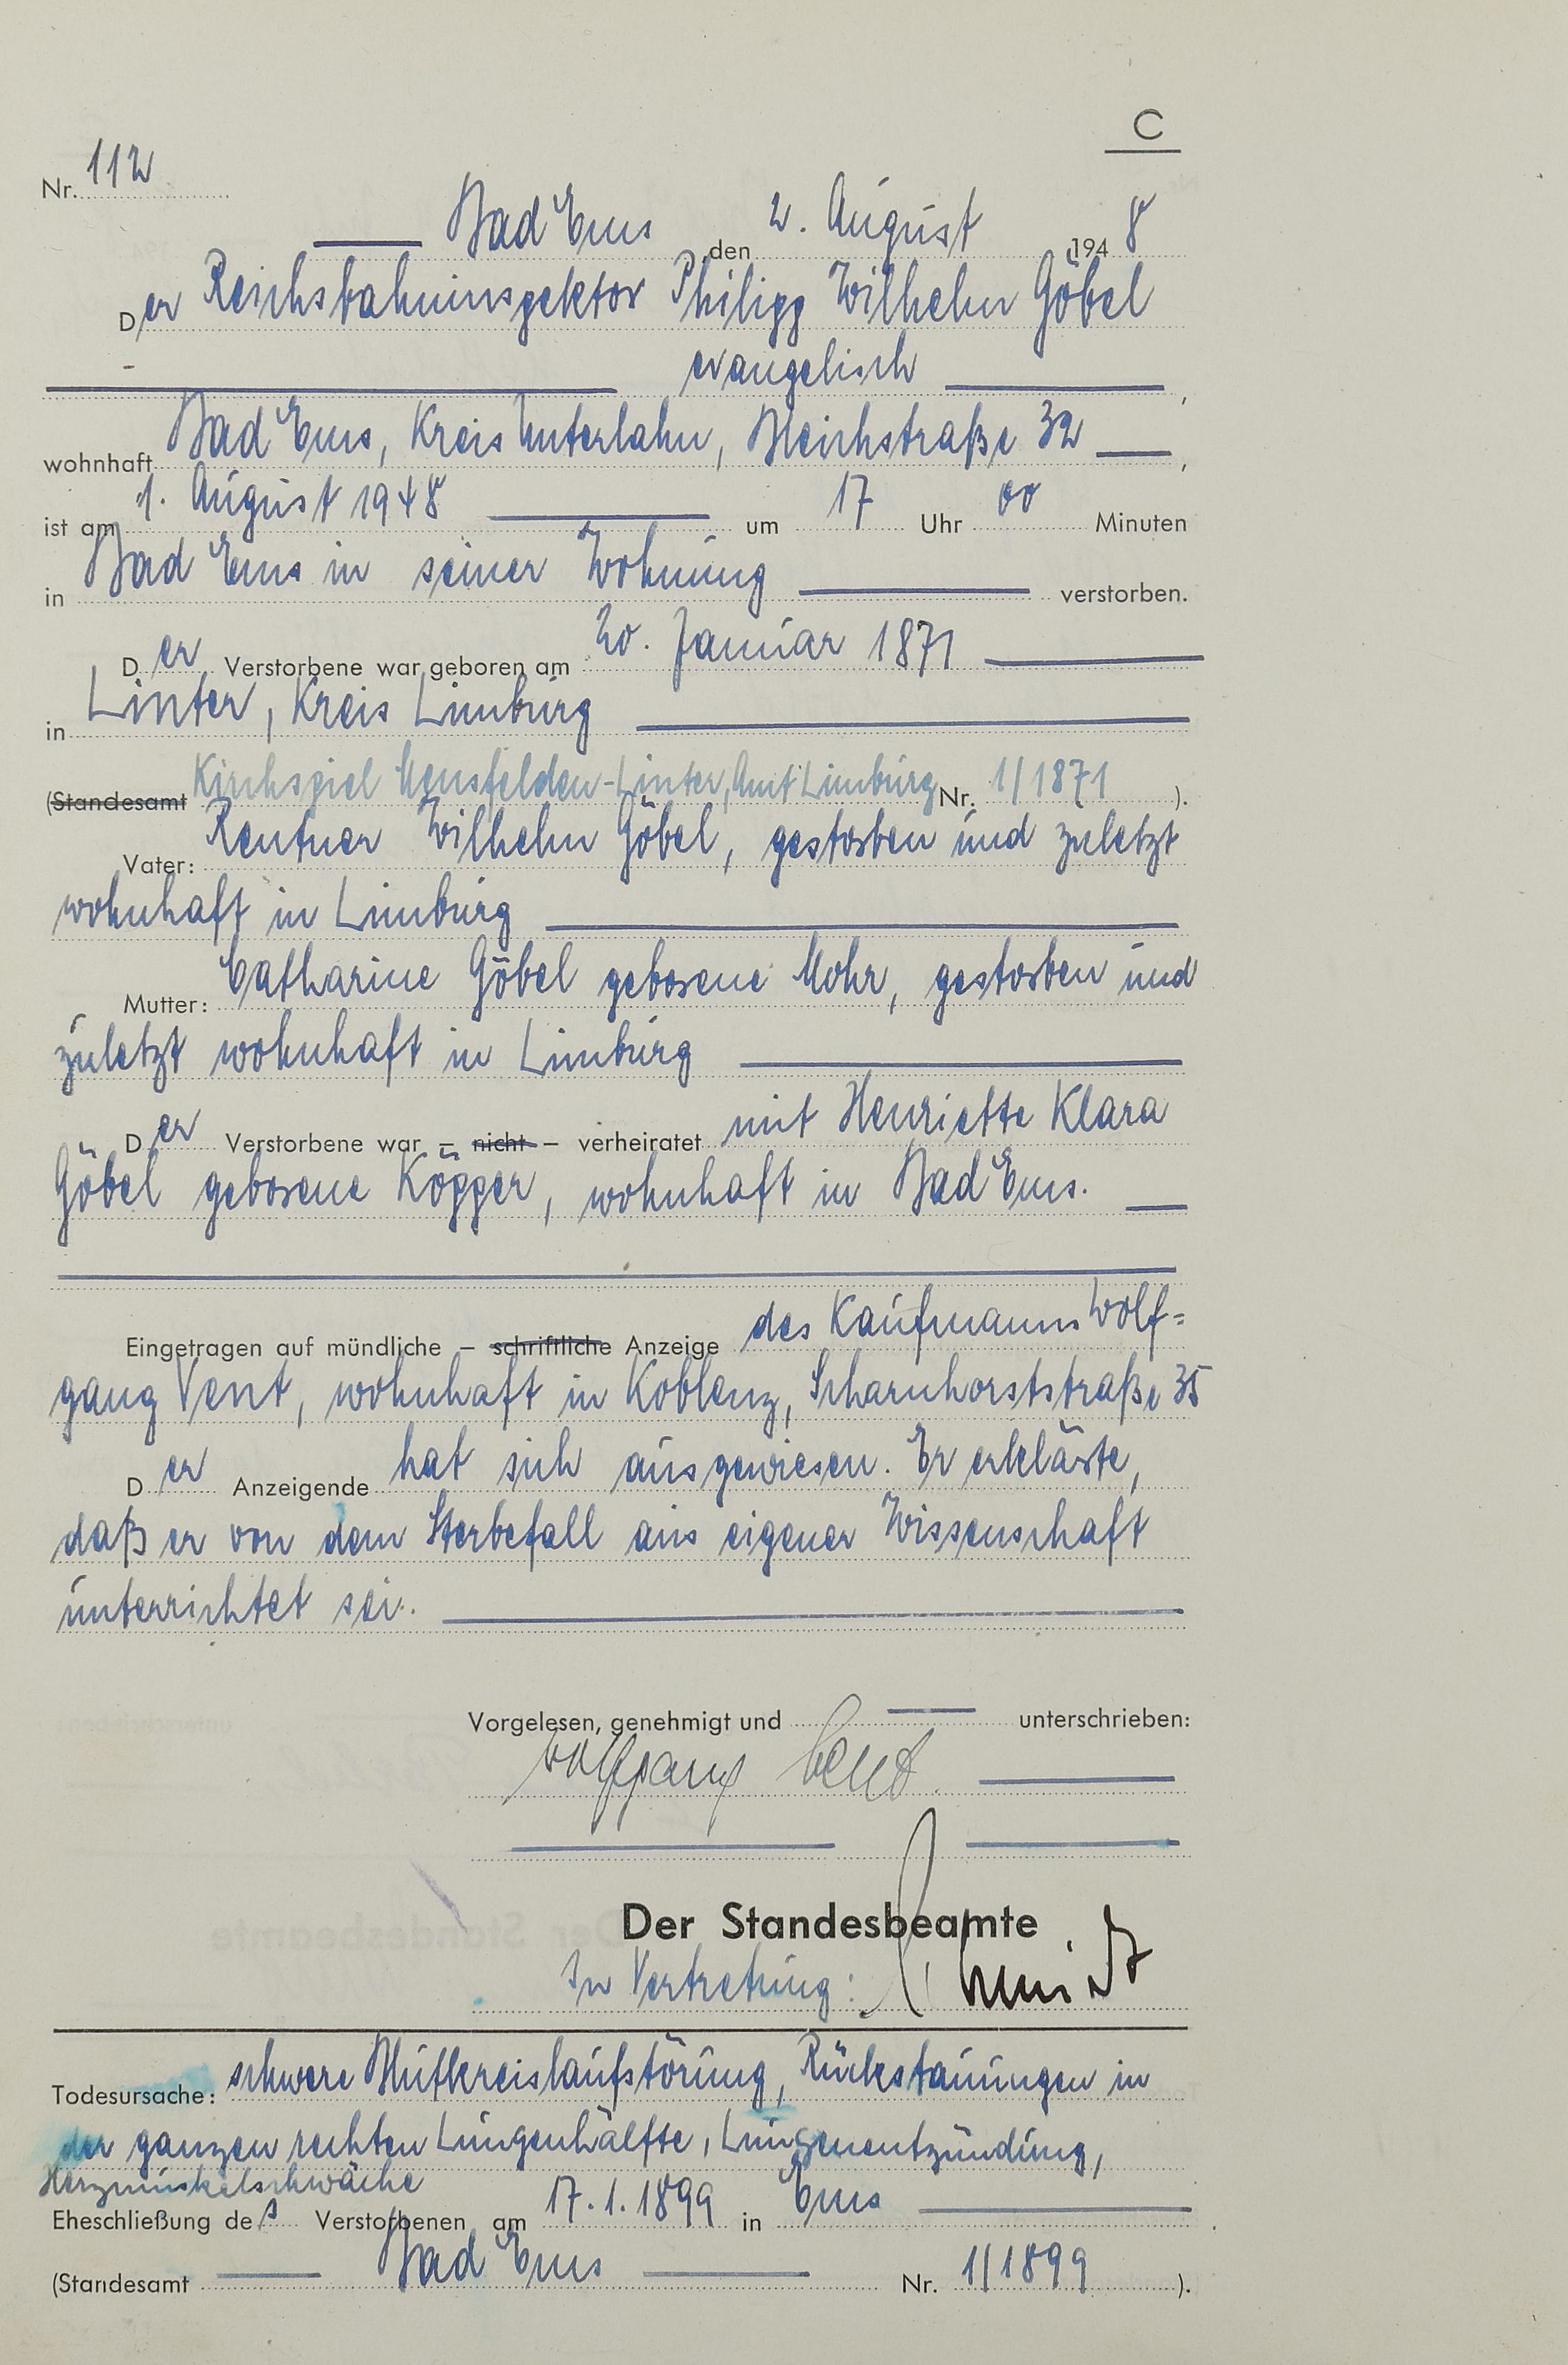 C
Nr. 112
Bad Ems, den 2. August 1948
Der Reichsbahninspektor Philipp Wilhelm Göbel
evangelisch,
wohnhaft Bad Ems, Kreis Unterlahn, Bleichstraße 32,
ist am 1. August 1948 um 17 Uhr 00 Minuten
in Bad Ems in seiner Wohnung verstorben.
Der Verstorbene war geboren am 20. Januar 1871
in Linter, Kreis Limburg
(Standesamt Kirchspiel Mensfelden-Linter, Amt Limburg Nr. 1/1871).
Vater: Rentner Wilhelm Göbel, gestorben und zuletzt
wohnhaft in Limburg
Mutter: Catharine Göbel geborene Mohr, gestorben und
zuletzt wohnhaft in Limburg
Der Verstorbene war – nicht – verheiratet mit Henriette Klara
Göbel geborene Köpper, wohnhaft in Bad Ems.
Eingetragen auf mündliche – schriftliche Anzeige des Kaufmanns Wolf=
gang Vent, wohnhaft in Koblenz, Scharnhorststraße 35
Der Anzeigende hat sich ausgewiesen. Er erklärte,
daß er von dem Sterbefall aus eigener Wissenschaft
unterrichtet sei.
Vorgelesen, genehmigt und unterschrieben:
Wolfgang Vent.
Der Standesbeamte
In Vertretung: Schmidt
Todesursache: schwere Blutkreislaufstörung, Rückstauungen in
der ganzen rechten Lungenhälfte, Lungenentzündung,
Herzmuskelschwäche
Eheschließung des Verstorbenen am 17.1.1899 in Ems
(Standesamt Bad Ems Nr. 1/1899).